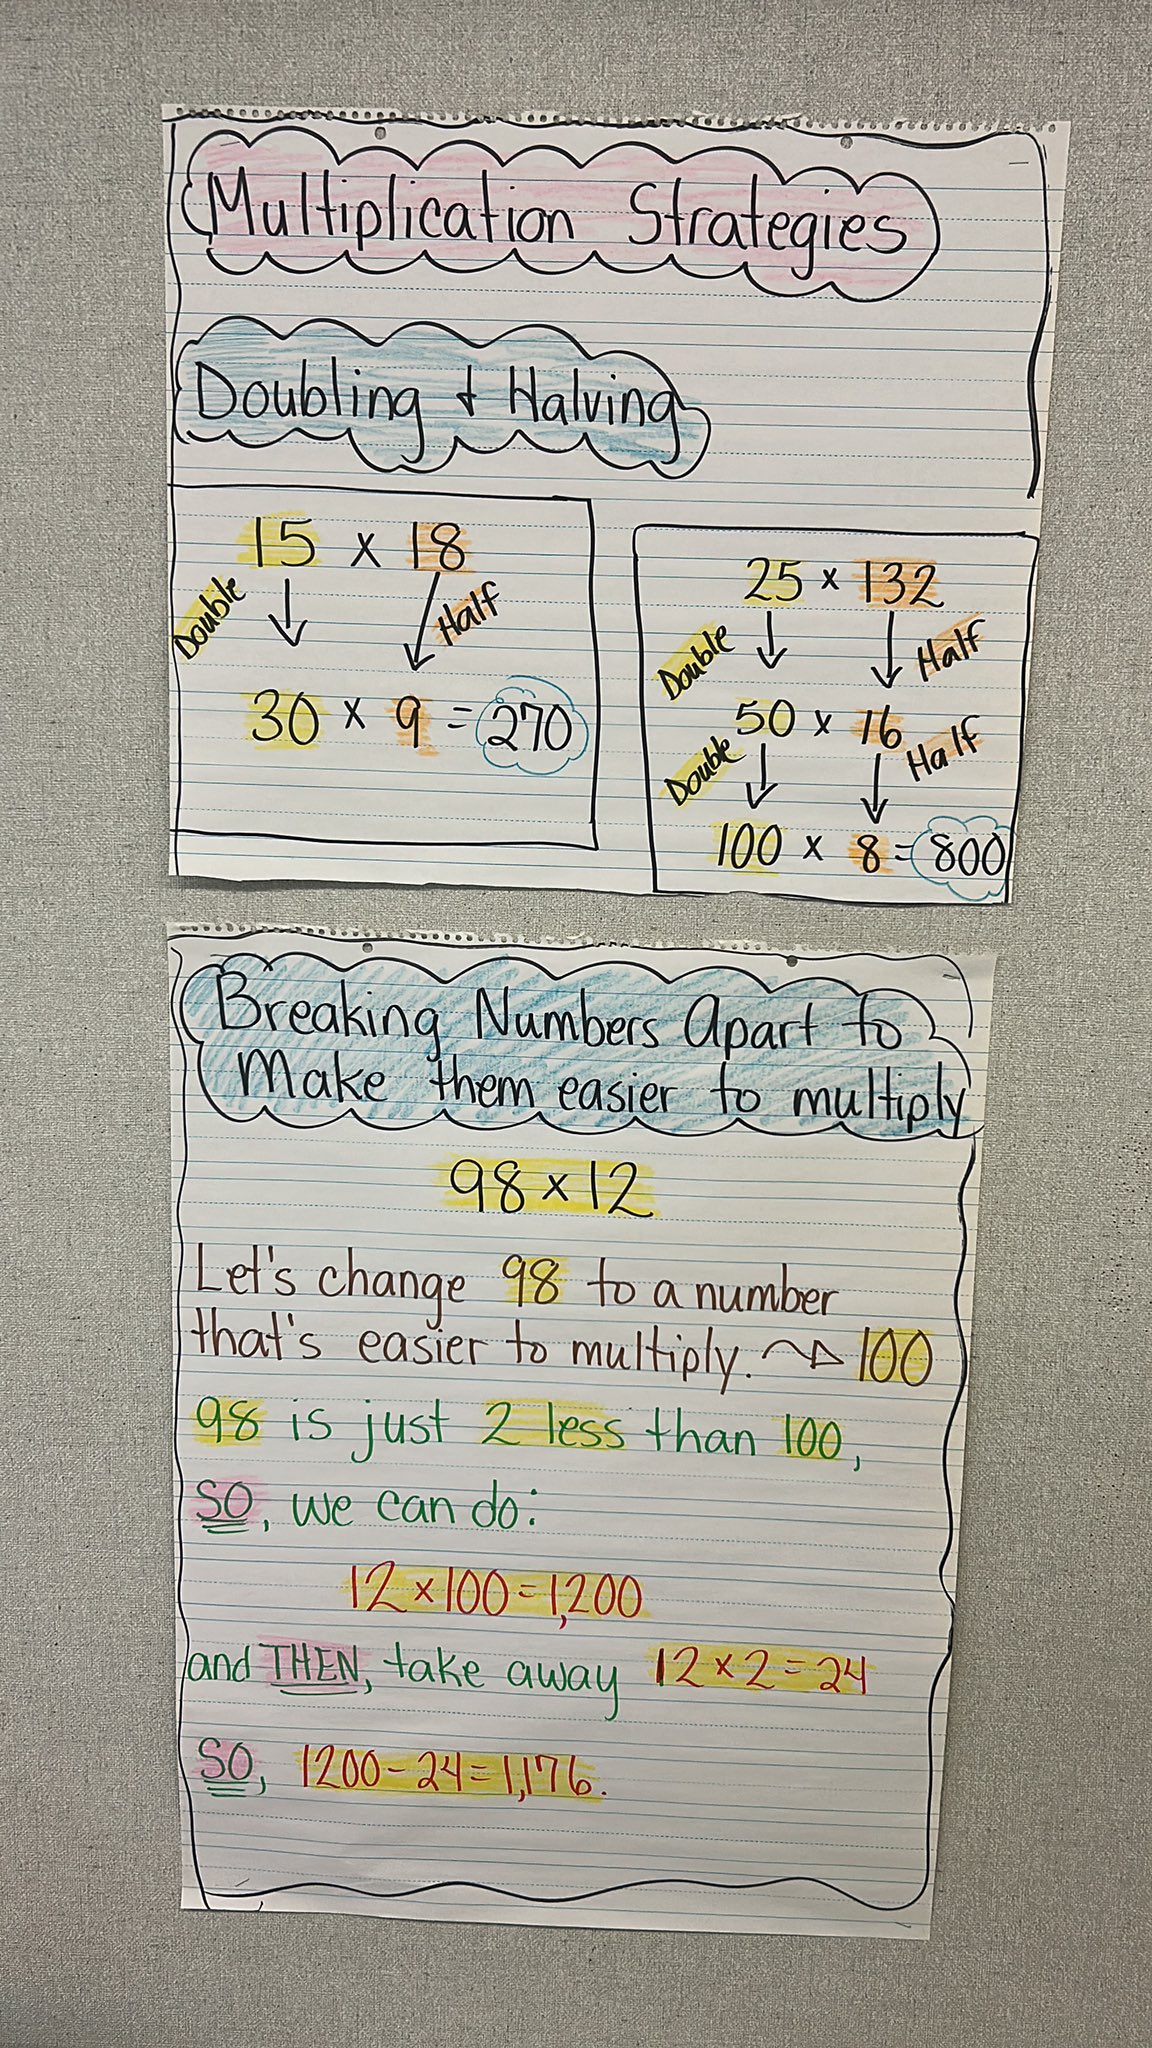 Multiplication Strategies
Doubling + Halving
15 x 18
Double Half
30 x 9 = 270
25 x 132
Double Half
50 x 16
Double Half
100 x 8 = 800
Breaking Numbers Apart to
Make them easier to multiply
98 x 12
Let's change 98 to a number
that's easier to multiply. → 100
98 is just 2 less than 100,
SO, we can do:
12 x 100 = 1,200
and THEN, take away 12 x 2 = 24
SO, 1200 - 24 = 1,176.